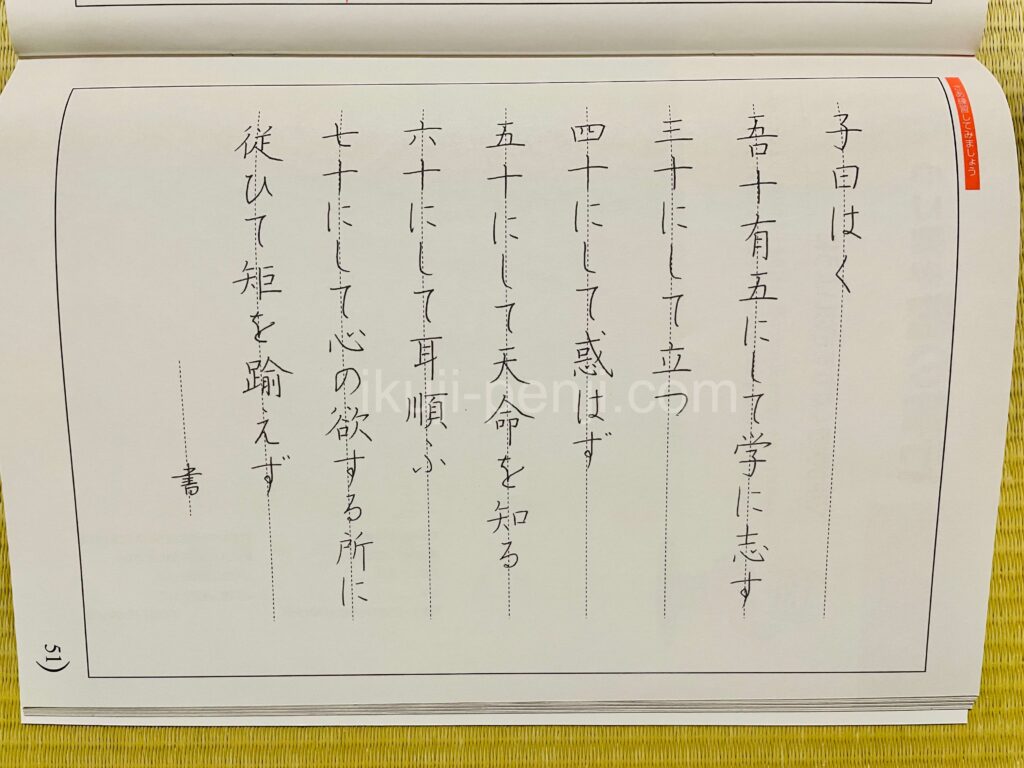 さあ練習してみましょう
子曰はく
吾十有五にして学に志す
三十にして立つ
四十にして惑はず
五十にして天命を知る
六十にして耳順ふ
七十にして心の欲する所に
従ひて矩を踰えず
書
51)
ikuji-penji.com